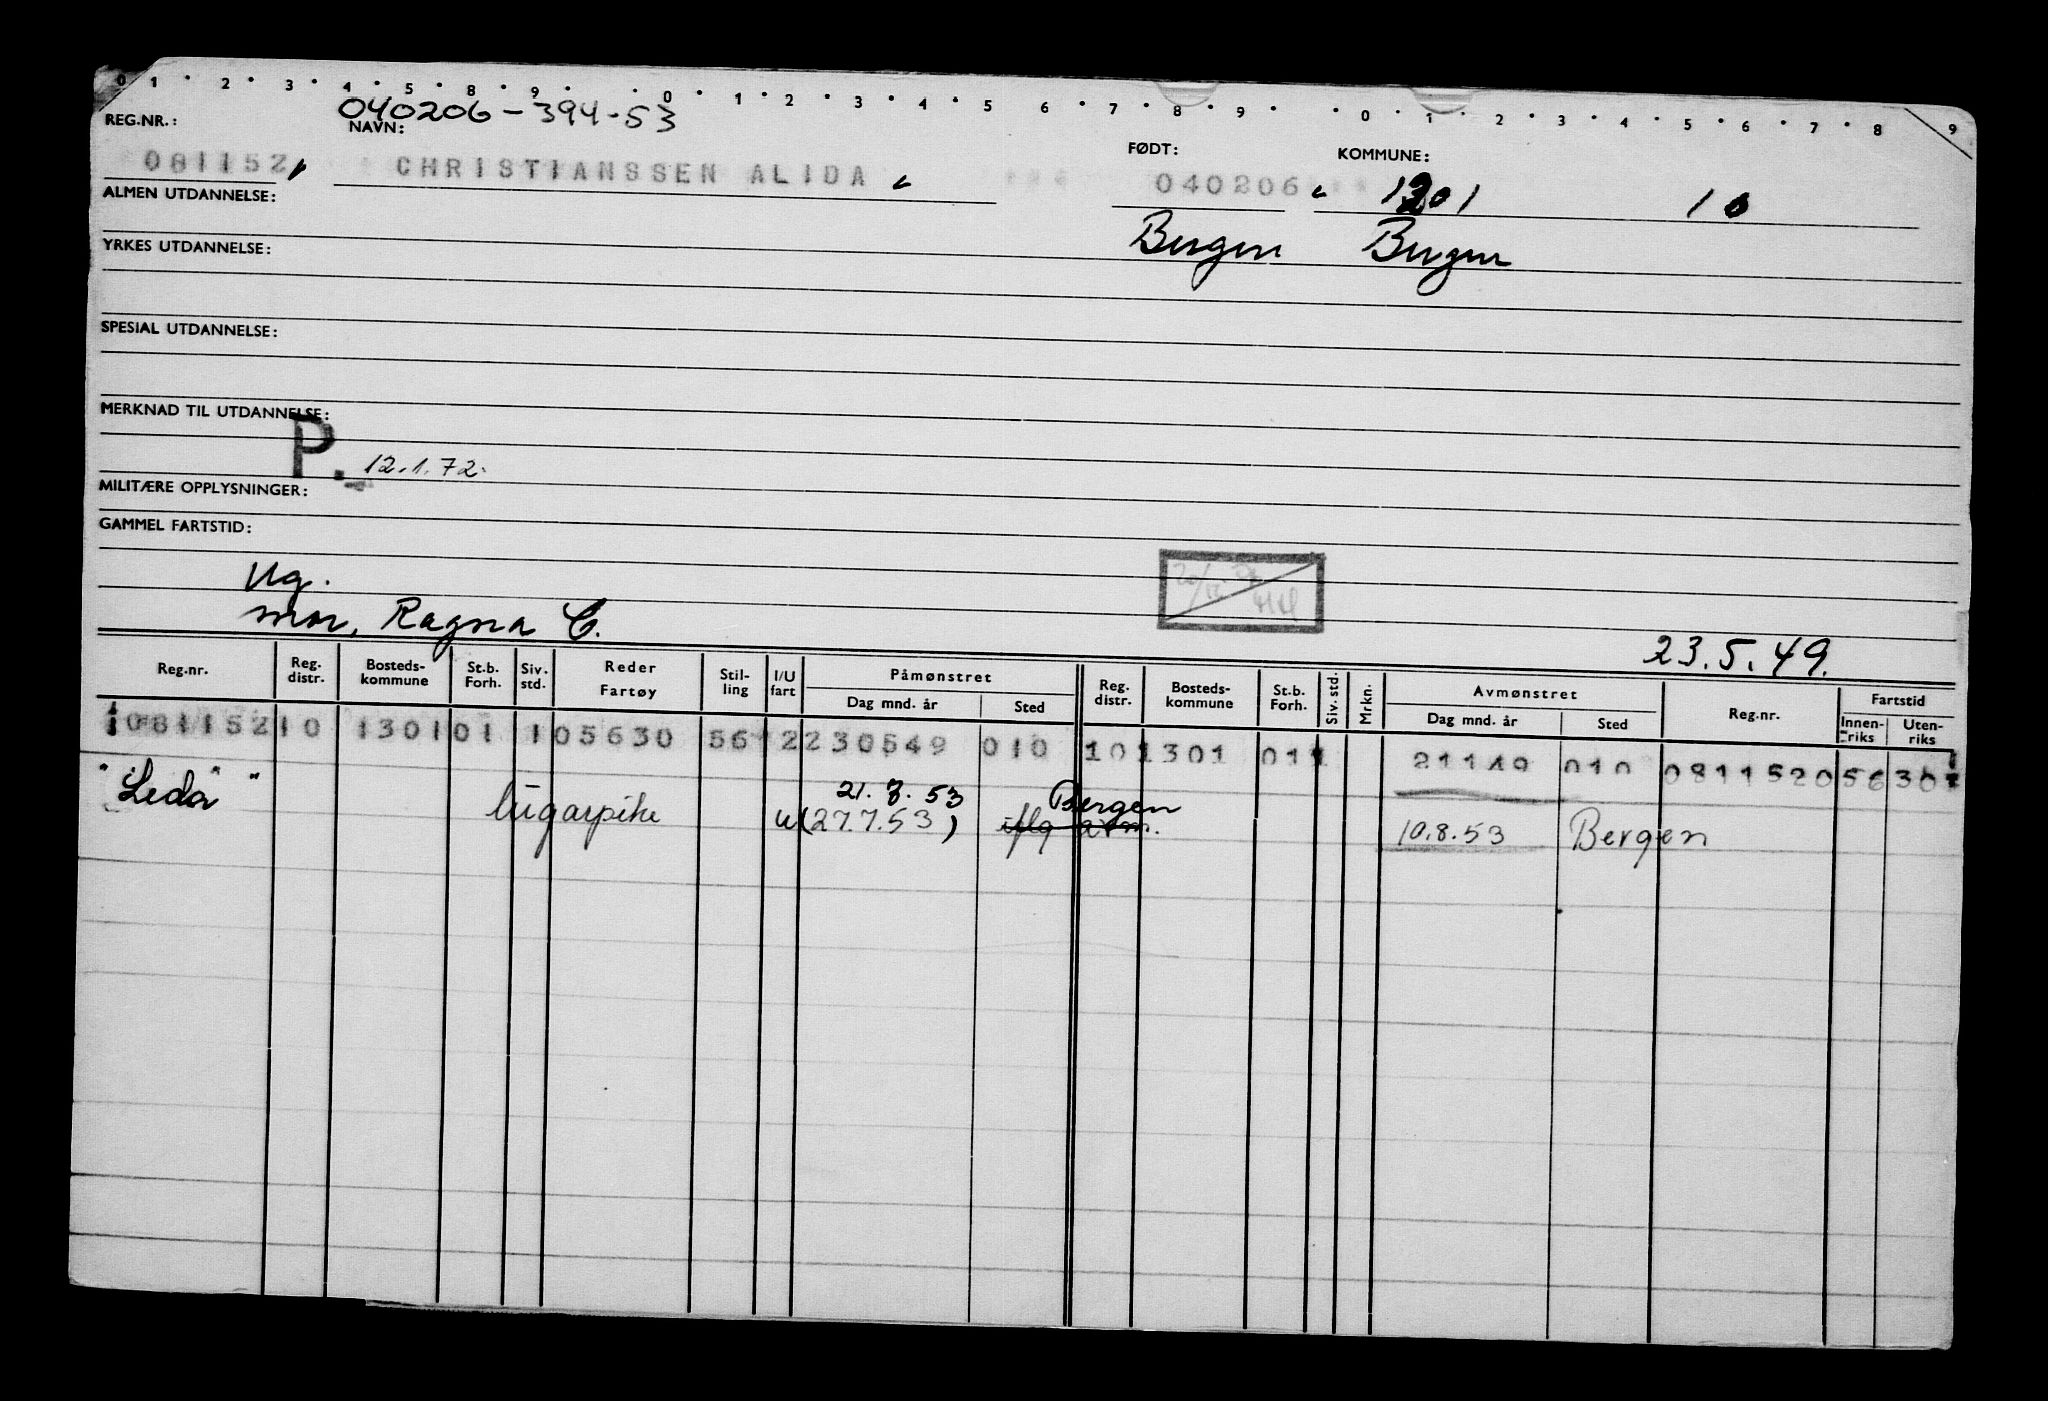 0 1 • 2 • 3 • 4 • 5 • 8 • 9 • • 0 • 1 • 2 • 3 • 4 • 5 6 • 7 • 8 • 9 • • 0 • 1 • 2 • 3 • 4 • 5 • 6 • 7 • 8 9
040206-394-53
REG.NR.: NAVN: FØDT: KOMMUNE:
081152 CHRISTIANSSEN ALIDA 040206 1301 10
ALMEN UTDANNELSE:
Bergen Bergen
YRKES UTDANNELSE:
SPESIAL UTDANNELSE:
MERKNAD TIL UTDANNELSE:
P. 12.1.72.
MILITÆRE OPPLYSNINGER:
GAMMEL FARTSTID:
Ug.
mor, Ragna C.
23.5.49.
Reg.nr. Reg. distr. Bosteds- kommune St.b. Forh. Siv. std. Reder Fartøy Stil- ling I/U fart Påmønstret Dag mnd. år Sted Reg. distr. Bosteds- kommune St.b. Forh. Siv. std. Mrkn. Avmønstret Dag mnd. år Sted Reg.nr. Fartstid Innen- riks Uten- riks
081152 10 1301 01 1 05630 561 2 230549 010 10 1301 01 1 21149 010 0811520 56 30
"Leda" " lugarpike u 21.7.53 (27.7.53) Bergen iflg avm. 10.8.53 Bergen